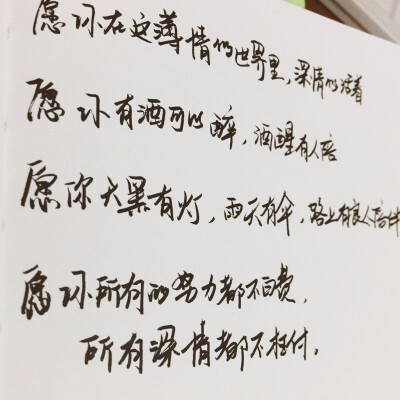 愿你在这薄情的世界里，深情的活着
愿你有酒可以醉，酒醒有人陪
愿你天黑有灯，雨天有伞，路上有良人陪伴
愿你所有的努力都不白费，
所有深情都不枉付。